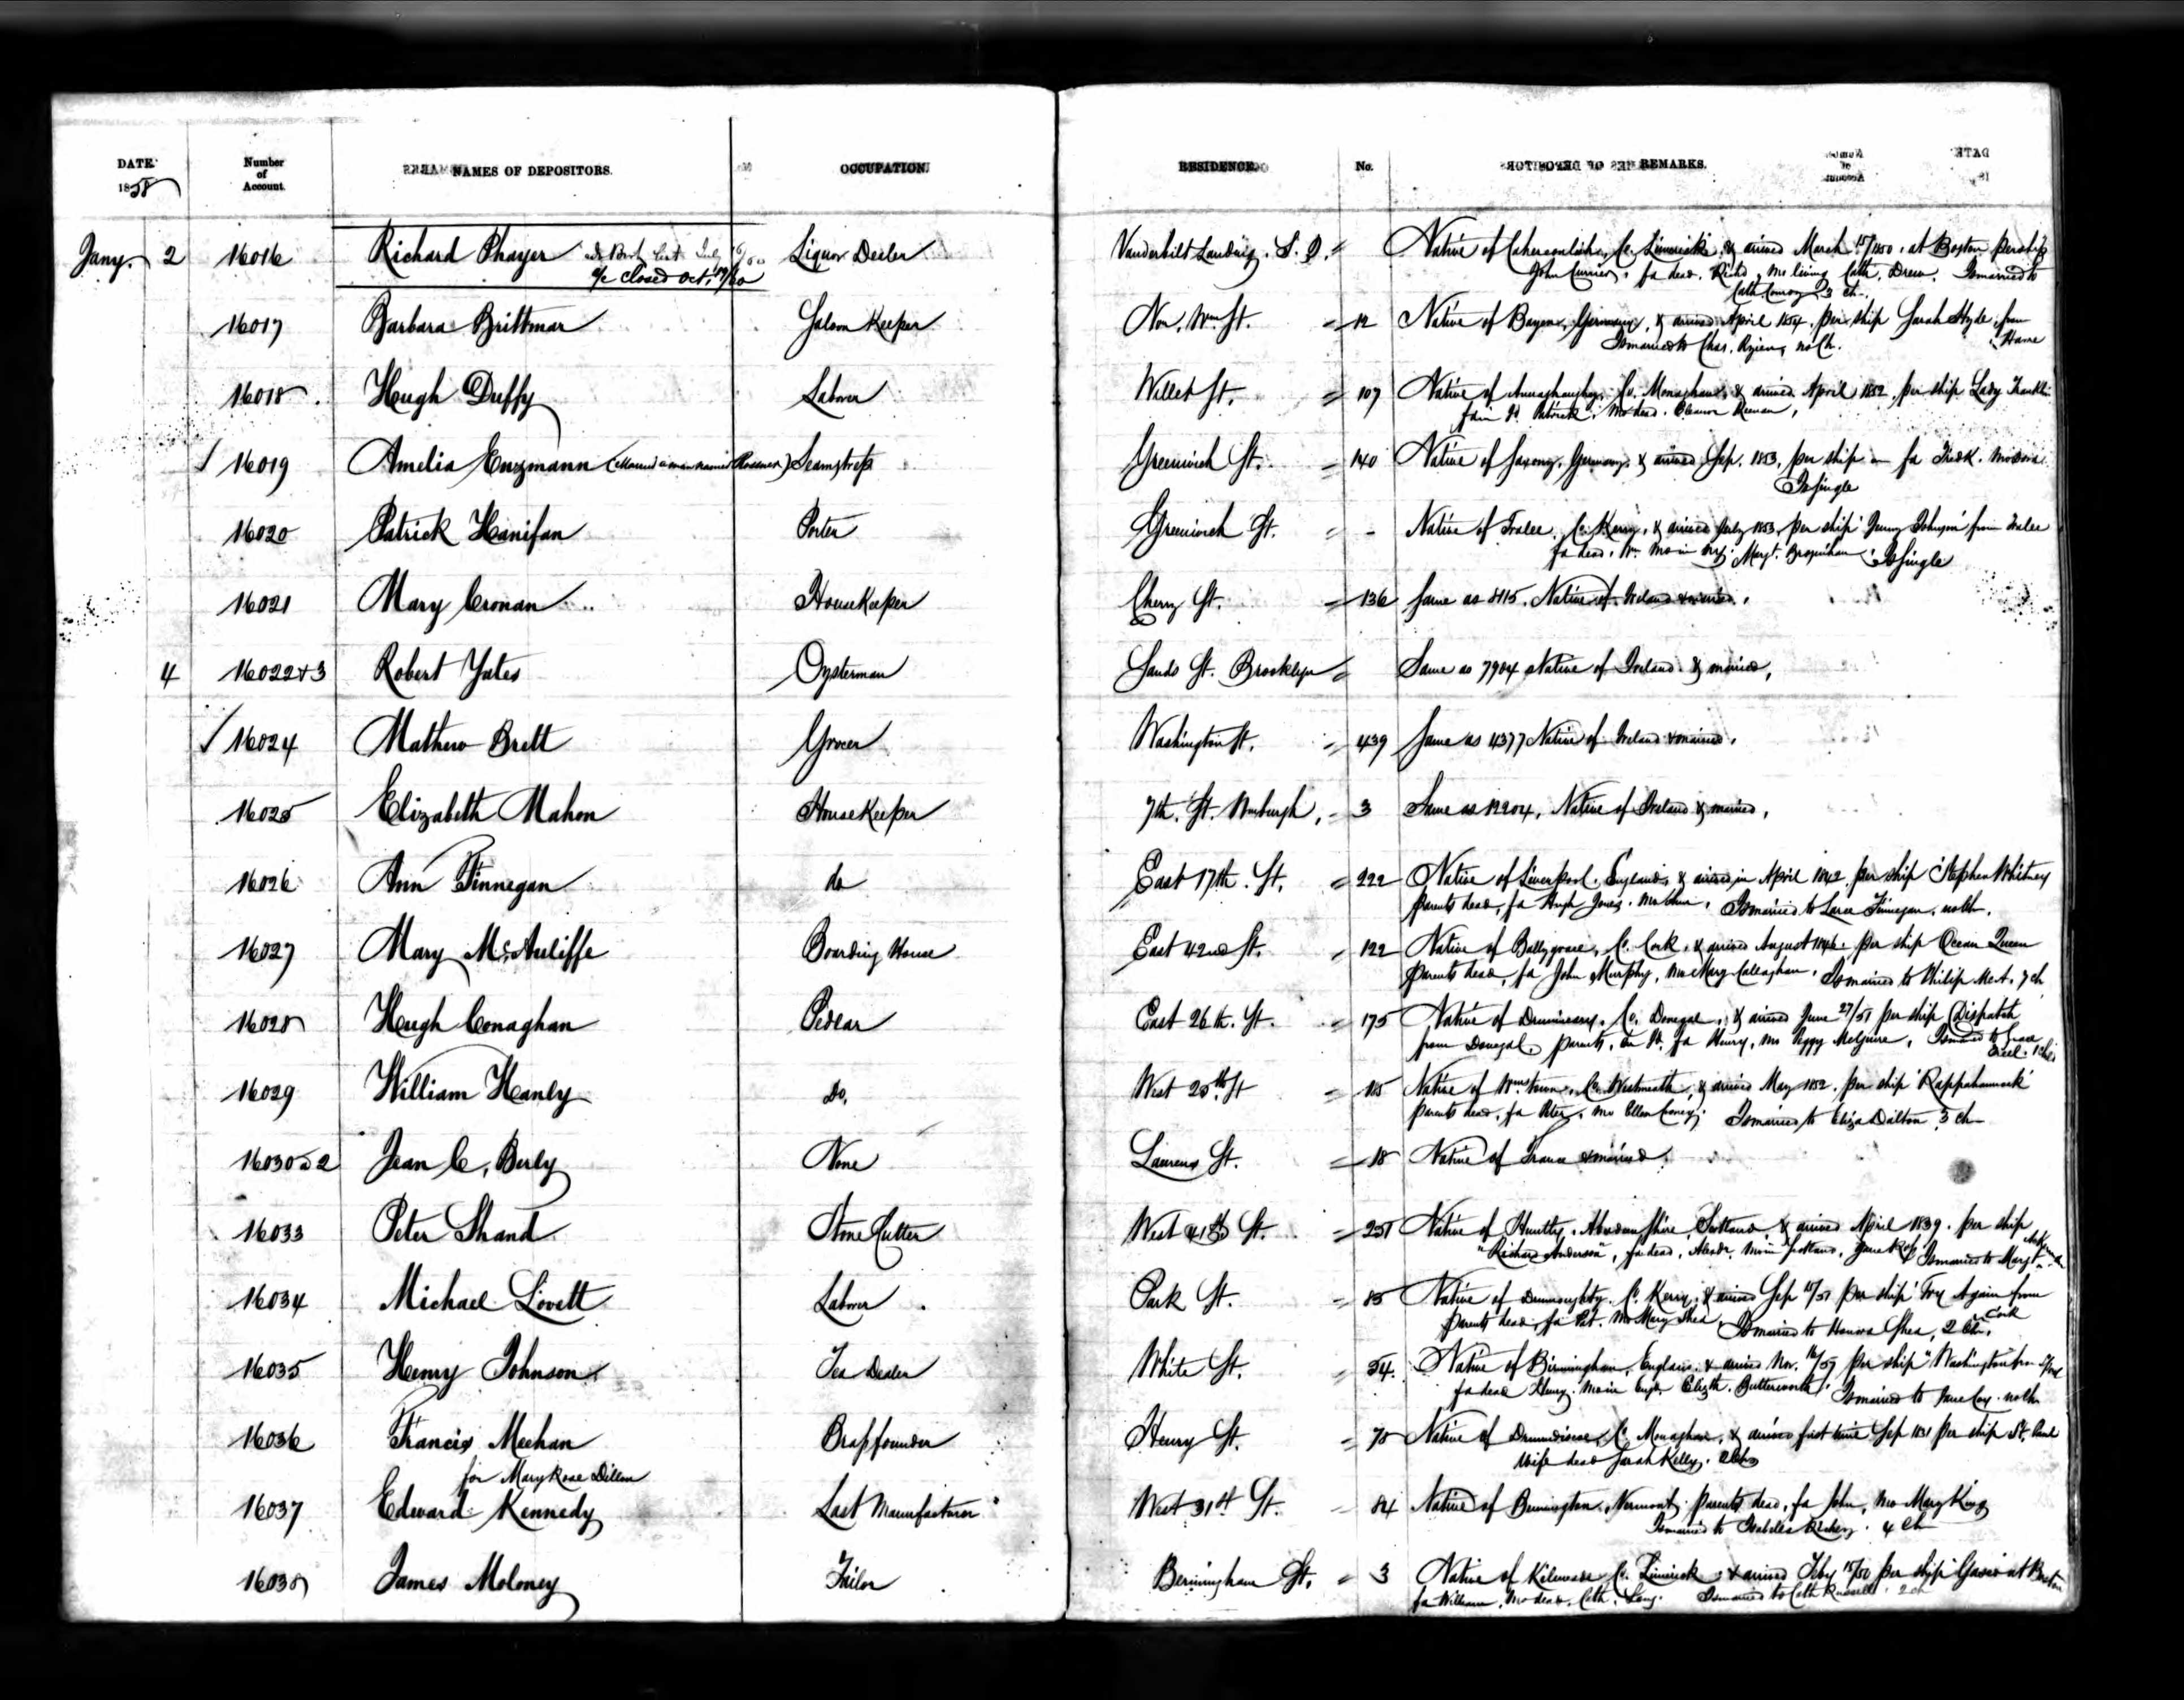 DATE Number of Account. NAMES OF DEPOSITORS. OCCUPATION. RESIDENCE. No. REMARKS.
1858
Jany. 2 16016 Richard Phayer Liquor Dealer Vanderbilt Landing. S. I. " Native of Caherconlish, Co. Limerick, & arrived March 15/1850, at Boston per ship
a/c closed Oct. 19/60 John Currier, fa dead, Richd, mo living Cath. Drew. Is married to
Cath. Conroy 3 ch.
16017 Barbara Brittmar Saloon Keeper Nor. Wm. St. " 12 Native of Bayern, Germany, & arrived April 1854, per ship Sarah Hyde, from
Is married to Chas. no Ch. Havre
16018 Hugh Duffy Laborer Willet St. " 107 Native of Co. Monaghan, & arrived April 1852, per ship Lady Franklin
fa in Id. Patrick, Mo dead. Eleanor Keenan,
16019 Amelia Enzmann (Married a man named Rossner) Seamstress Greenwich St. " 140 Native of Saxony, Germany, & arrived Sep. 1853, per ship — fa Fredk.
Is single
16020 Patrick Hanifan Porter Greenwich St. " - Native of Tralee, Co. Kerry, & arrived July 1853, per ship Jenny Johnson from Tralee
fa dead, Wm. Mo in Margt. Brosnihan, Is single
16021 Mary Cronan Housekeeper Cherry St. " 136 Same as 8115. Native of Ireland & married,
4 16022+3 Robert Yates Oysterman Sands St. Brooklyn " Same as 7904 Native of Ireland & married,
16024 Mathew Brett Grocer Washington St. " 439 Same as 4377 Native of Ireland & married,
16025 Elizabeth Mahon HouseKeeper 7th. St. Wmsburgh, " 3 Same as 12204, Native of Ireland & married,
16026 Ann Finnegan do East 17th. St. " 222 Native of Liverpool, England, & arrived in April 1842, per ship Stephen Whitney
parents dead, fa Hugh Jones, Mo Ann, Is married to Lawce Finnegan, no Ch.
16027 Mary McAuliffe Boarding House East 42nd St. " 122 Native of Co. Cork, & arrived August 1846, per ship Ocean Queen
parents dead, fa John Murphy, Mo Mary Callaghan, Is married to Philip McA. 7 ch
16028 Hugh Conaghan Pedlar East 26th. St. " 175 Native of Co. Donegal, & arrived June 27/51 per ship Dispatch
from Donegal, parents, in Id. fa Henry, Mo Peggy McGuire, Is married to Grace
1 Ch.
16029 William Hanly Do. West 25th. St " 115 Native of Wmstown, Co. Westmeath, & arrived May 1852, per ship "Rappahannock"
parents dead, fa Peter, Mo Ellen Is married to Eliza Dalton, 3 ch
16030 a 2 Jean C. Berly None Laurens St. " 18 Native of France & married.
16033 Peter Shand Stone Cutter West 41st St. " 251 Native of Huntly, Aberdeenshire, Scotland & arrived April 1839, per ship
"Richard Anderson", fa dead, Alexdr. Mo in Scotland, Jane Is married to Margt
16034 Michael Lovett Laborer Park St. " 85 Native of Co. Kerry, & arrived Sep 15/51 per ship Try Again from
parents dead, fa Pat. Mo Mary Shea, Is married to Honora Shea, 2 Ch. Cork
16035 Henry Johnson Tea Dealer White St. " 54. Native of Birmingham, England, & arrived Nov. 16/57 per ship "Washington from
fa dead Henry. Mo in Engd. Elizth. Butterworth, Is married to Jane Coy no Ch
16036 Francis Meehan Brassfounder Henry St. " 78 Native of Co. Monaghan, & arrived first time Sep 1831 per ship St. Paul
for Mary Rose Dillon Wife dead Sarah Kelly.
16037 Edward Kennedy Last Manufacturer West 31st St. " 84 Native of Bennington, Vermont, parents dead, fa John, Mo Mary King
Is married to Isabella 4 Ch
16038 James Moloney Tailor Bermingham St. " 3 Native of Co. Limerick & arrived Feby 15/50 per ship at Boston
fa William, Mo dead, Cath. Is married to Cath Russell, 2 ch